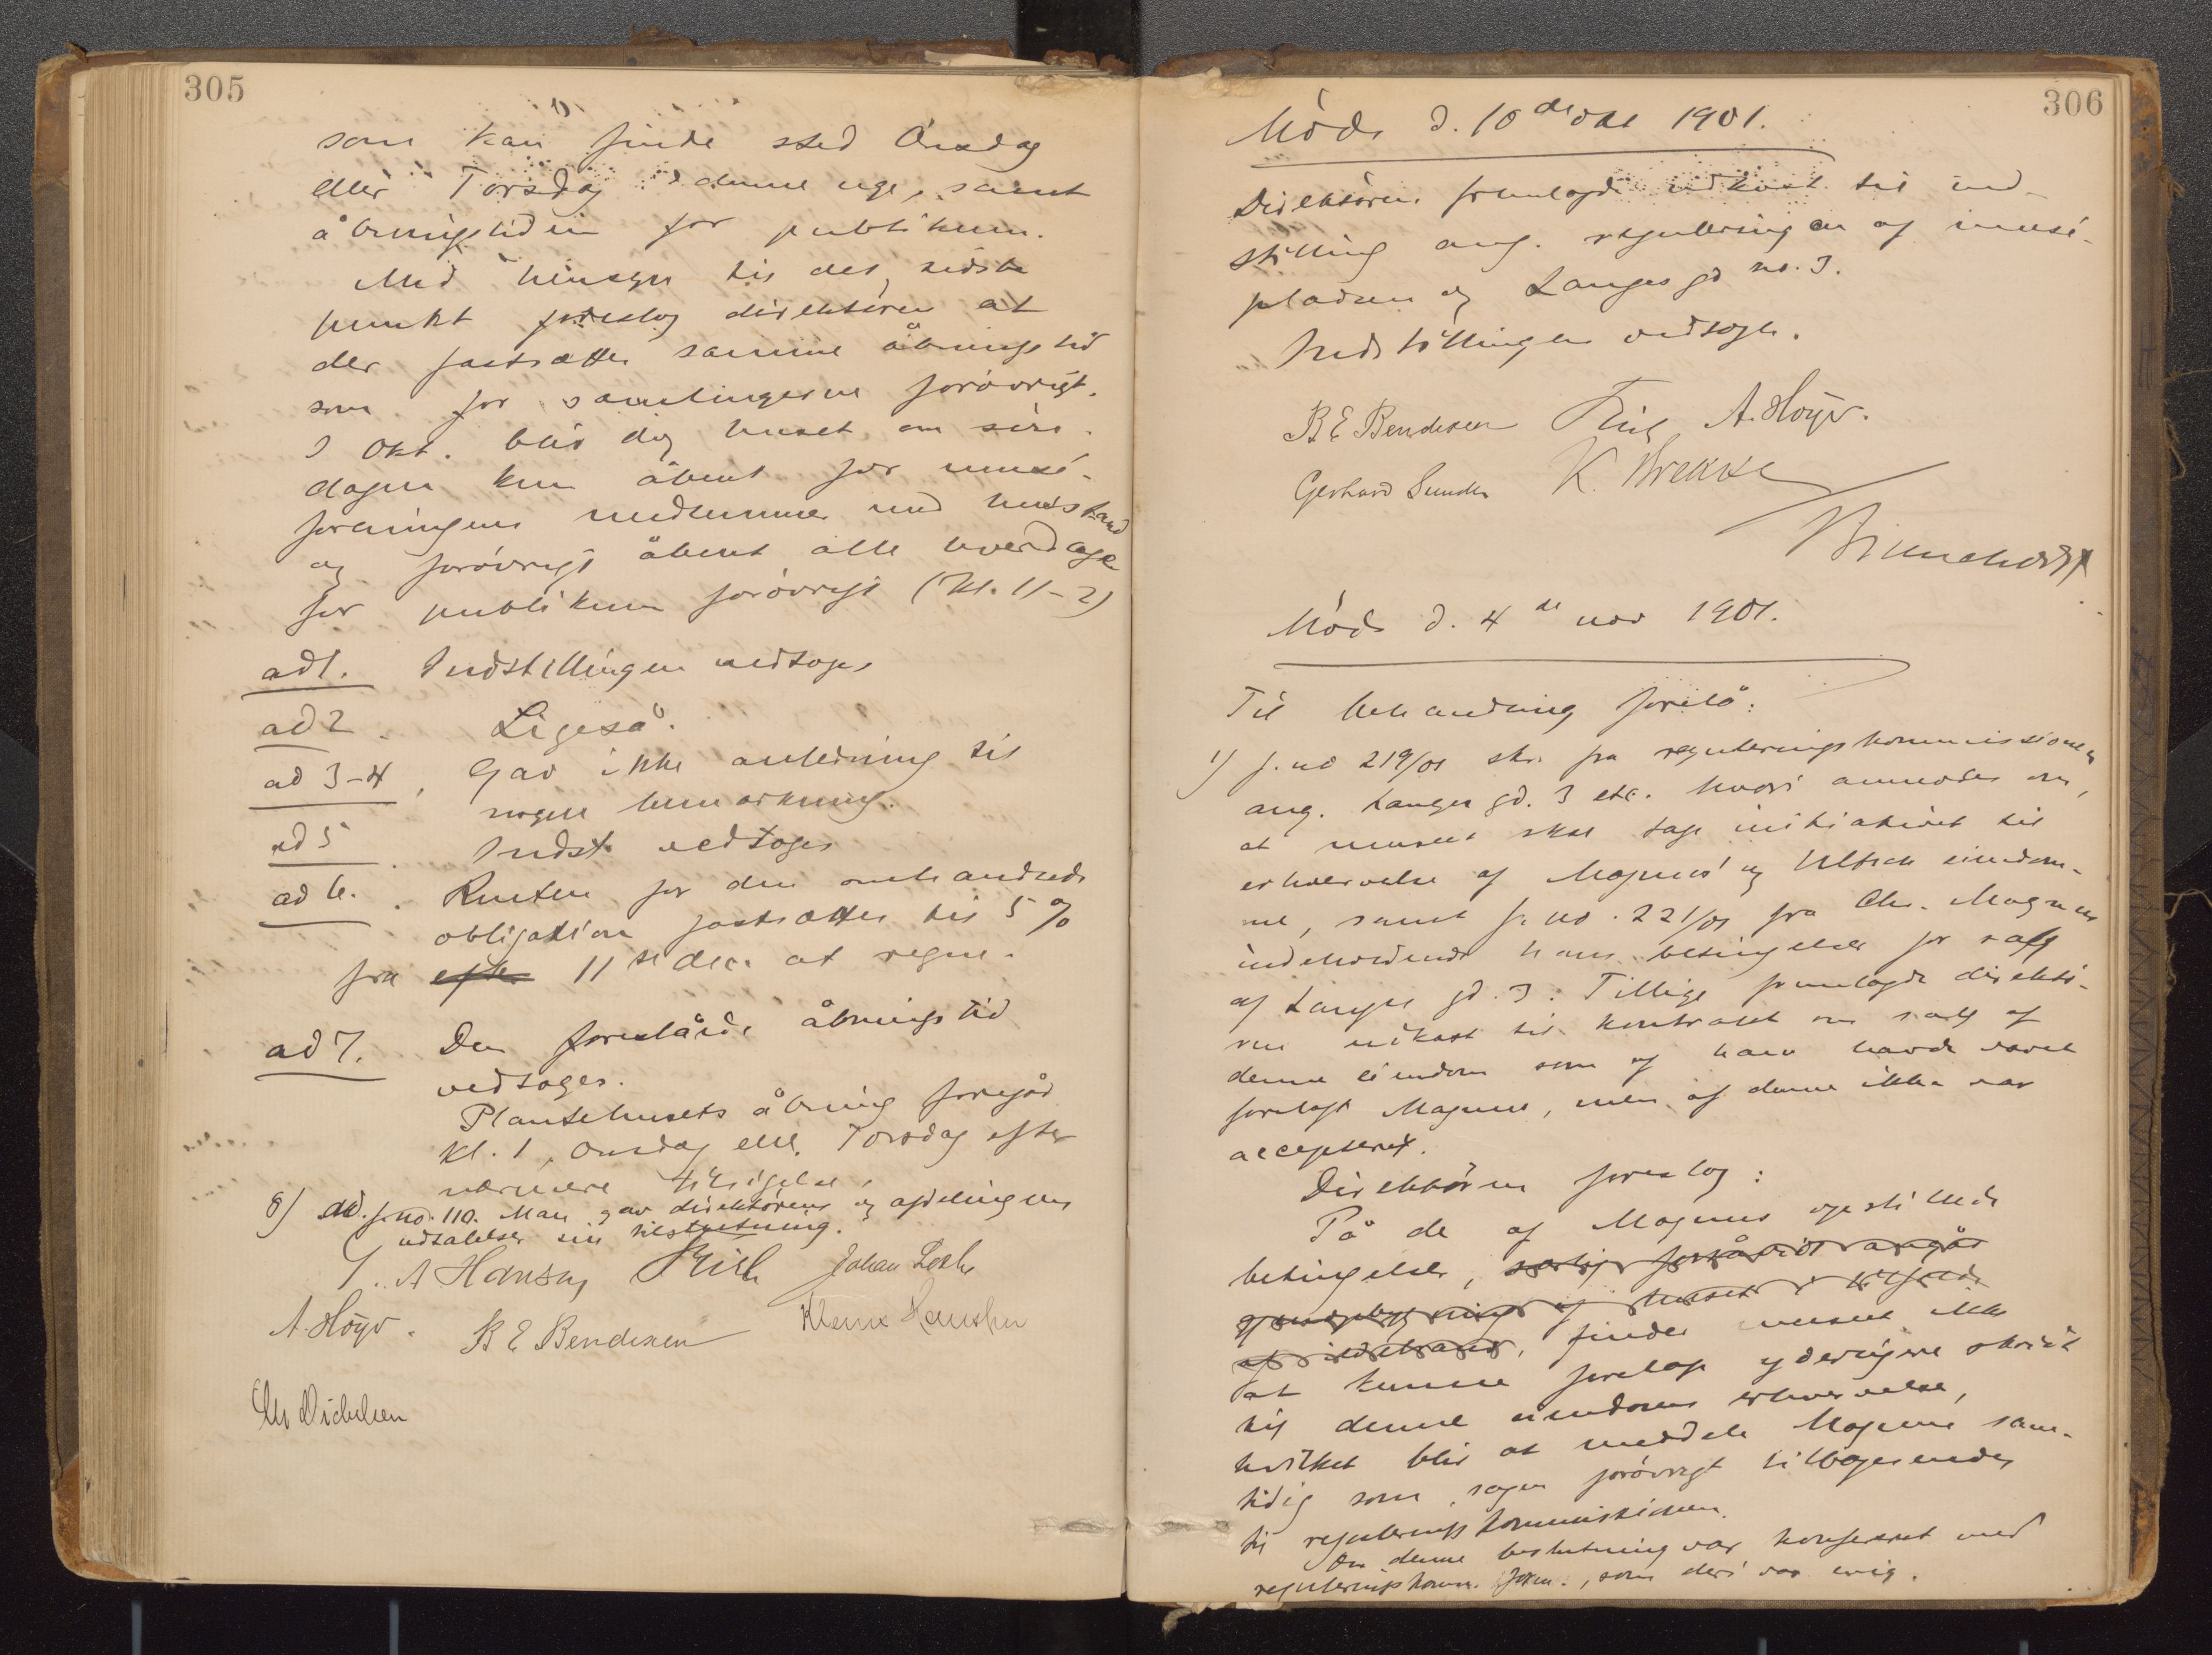 305
som kan finde sted Onsdag
eller Torsdag i denne uge, samt
åbningstiden for publikum.
Med hensyn til det sidste
punkt foreslog direktören at
der fastsættes samme åbningstid
som for samlingerne forövrigt.
I Okt. blir dog huset om sön-
dagen kun åbent for musé-
foreningens medlemmer med husstand
og forövrigt åbent alle hverdage
for publikum forövrigt (Kl. 11-2)
ad 1. Indstillingen vedtoges
ad 2. Ligeså.
ad 3-4, Gav ikke anledning til
nogen bemærkning.
ad 5. Indst. vedtoges
ad 6. Renten for den omhandlede
obligation fastsættes til 5 %
fra efter 11te dec. at regne.
ad 7. Den foreslåede åbningstid
vedtoges.
Plantehusets åbning foregår
kl. 1, Onsdag ell. Torsdag efter
nærmere tilsigelse.
8) Ad. j. no. 110. Man gav direktörens og afdelingens
udtalelser sin tilslutning.
A Hansen Johan Lothe
A. Höyer. B E Bendixen Klaus Hanssen
306
Möde d. 10de okt 1901.
Direktören fremlagde udkast til ind-
stilling ang. reguleringen af musé-
pladsen og Langes gd no. 3.
Indstillingen vedtoges.
B E Bendixen A. Höyer.
Gerhard Sunde K. Brekke
Brunchorst
Möde d. 4de nov 1901.
Til behandling forelå:
1) J. no 219/01 skr. fra reguleringskommissionen
ang. Langes gd. 3 etc. hvori anmodes om,
at museet skal tage initiativet til
erhvervelse af Magnus' og Ulfsen eiendom-
me, samt J. no. 221/01 fra Chr. Magnus
indeholdende hans betingelser for salg
af Langes gd. 3. Tillige fremlagde direktö-
ren udkast til kontrakt om salg af
denne eiendom som af ham havde været
forelagt Magnus, men af denne ikke var
accepteret.
Direktören foreslog:
På de af Magnus opstillede
betingelser, særlig forsåvidt angår
af huset i tilfælde
af ildebrand, finder museet ikke
at kunne foretage yderligere skridt
til denne eiendoms erhvervelse,
hvilket blir at meddele Magnus sam-
tidig som sagen forövrigt tilbagesendes
til reguleringskommissionen.
Om denne beslutning var konfereret med
reguleringskomm. form., som deri var enig.